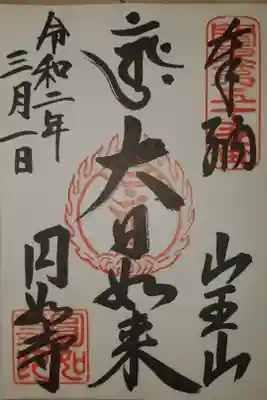 奉納
山王山
大日如来
円如寺
令和二年
三月一日